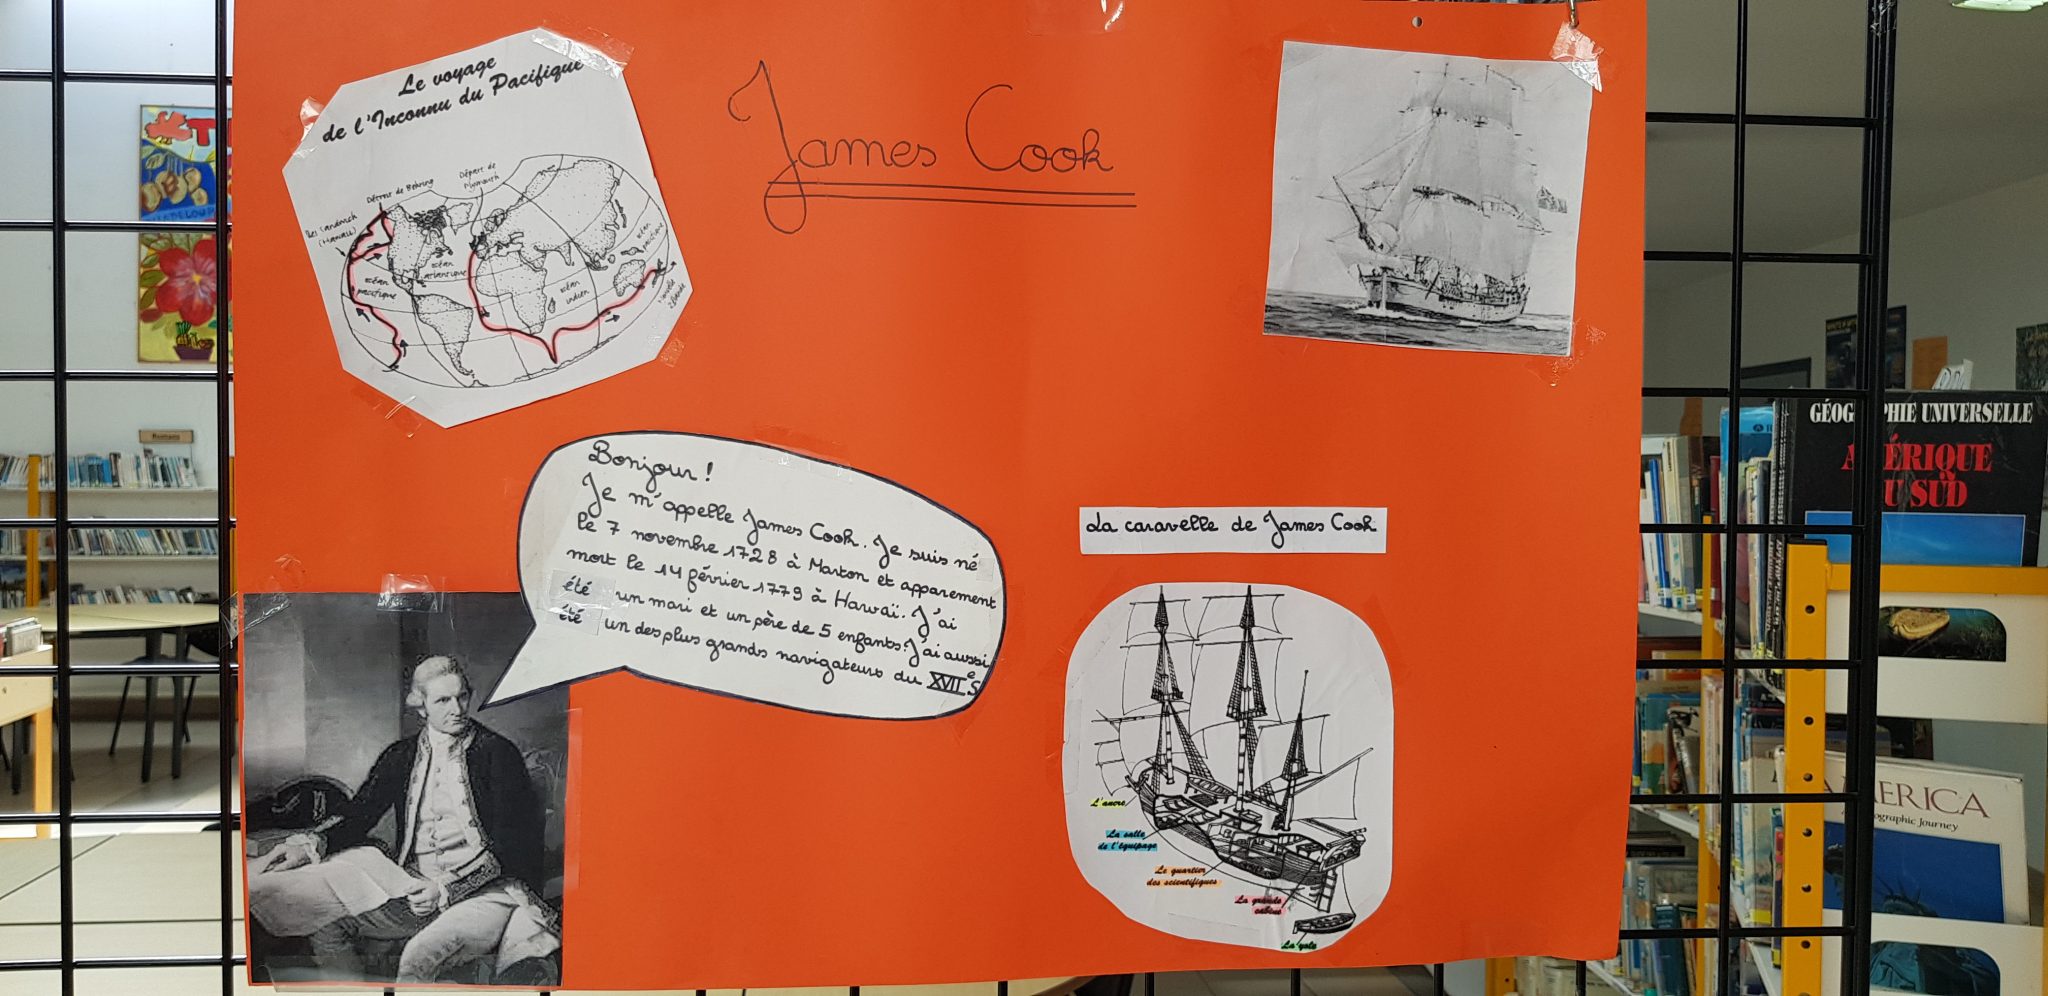 Le voyage
de l'Inconnu du Pacifique
Détroit de Behring
Départ de
Plymouth
(Hawaii)
océan
pacifique
océan
atlantique
océan
indien
océan
pacifique
Nouvelle
Zélande
James Cook
Bonjour !
Je m'appelle James Cook. Je suis né
le 7 novembre 1728 à Marton et apparement
mort le 14 février 1779 à Hawaï. J'ai
été un mari et un père de 5 enfants. J'ai aussi
été un des plus grands navigateurs du XVII e S
La caravelle de James Cook
L'ancre
La salle
de l'équipage
Le quartier
des scientifiques
La grande
cabine
La yole
Romans
GÉOG PHIE UNIVERSELLE
A ÉRIQUE
U SUD
AMERICA
ographic Journey